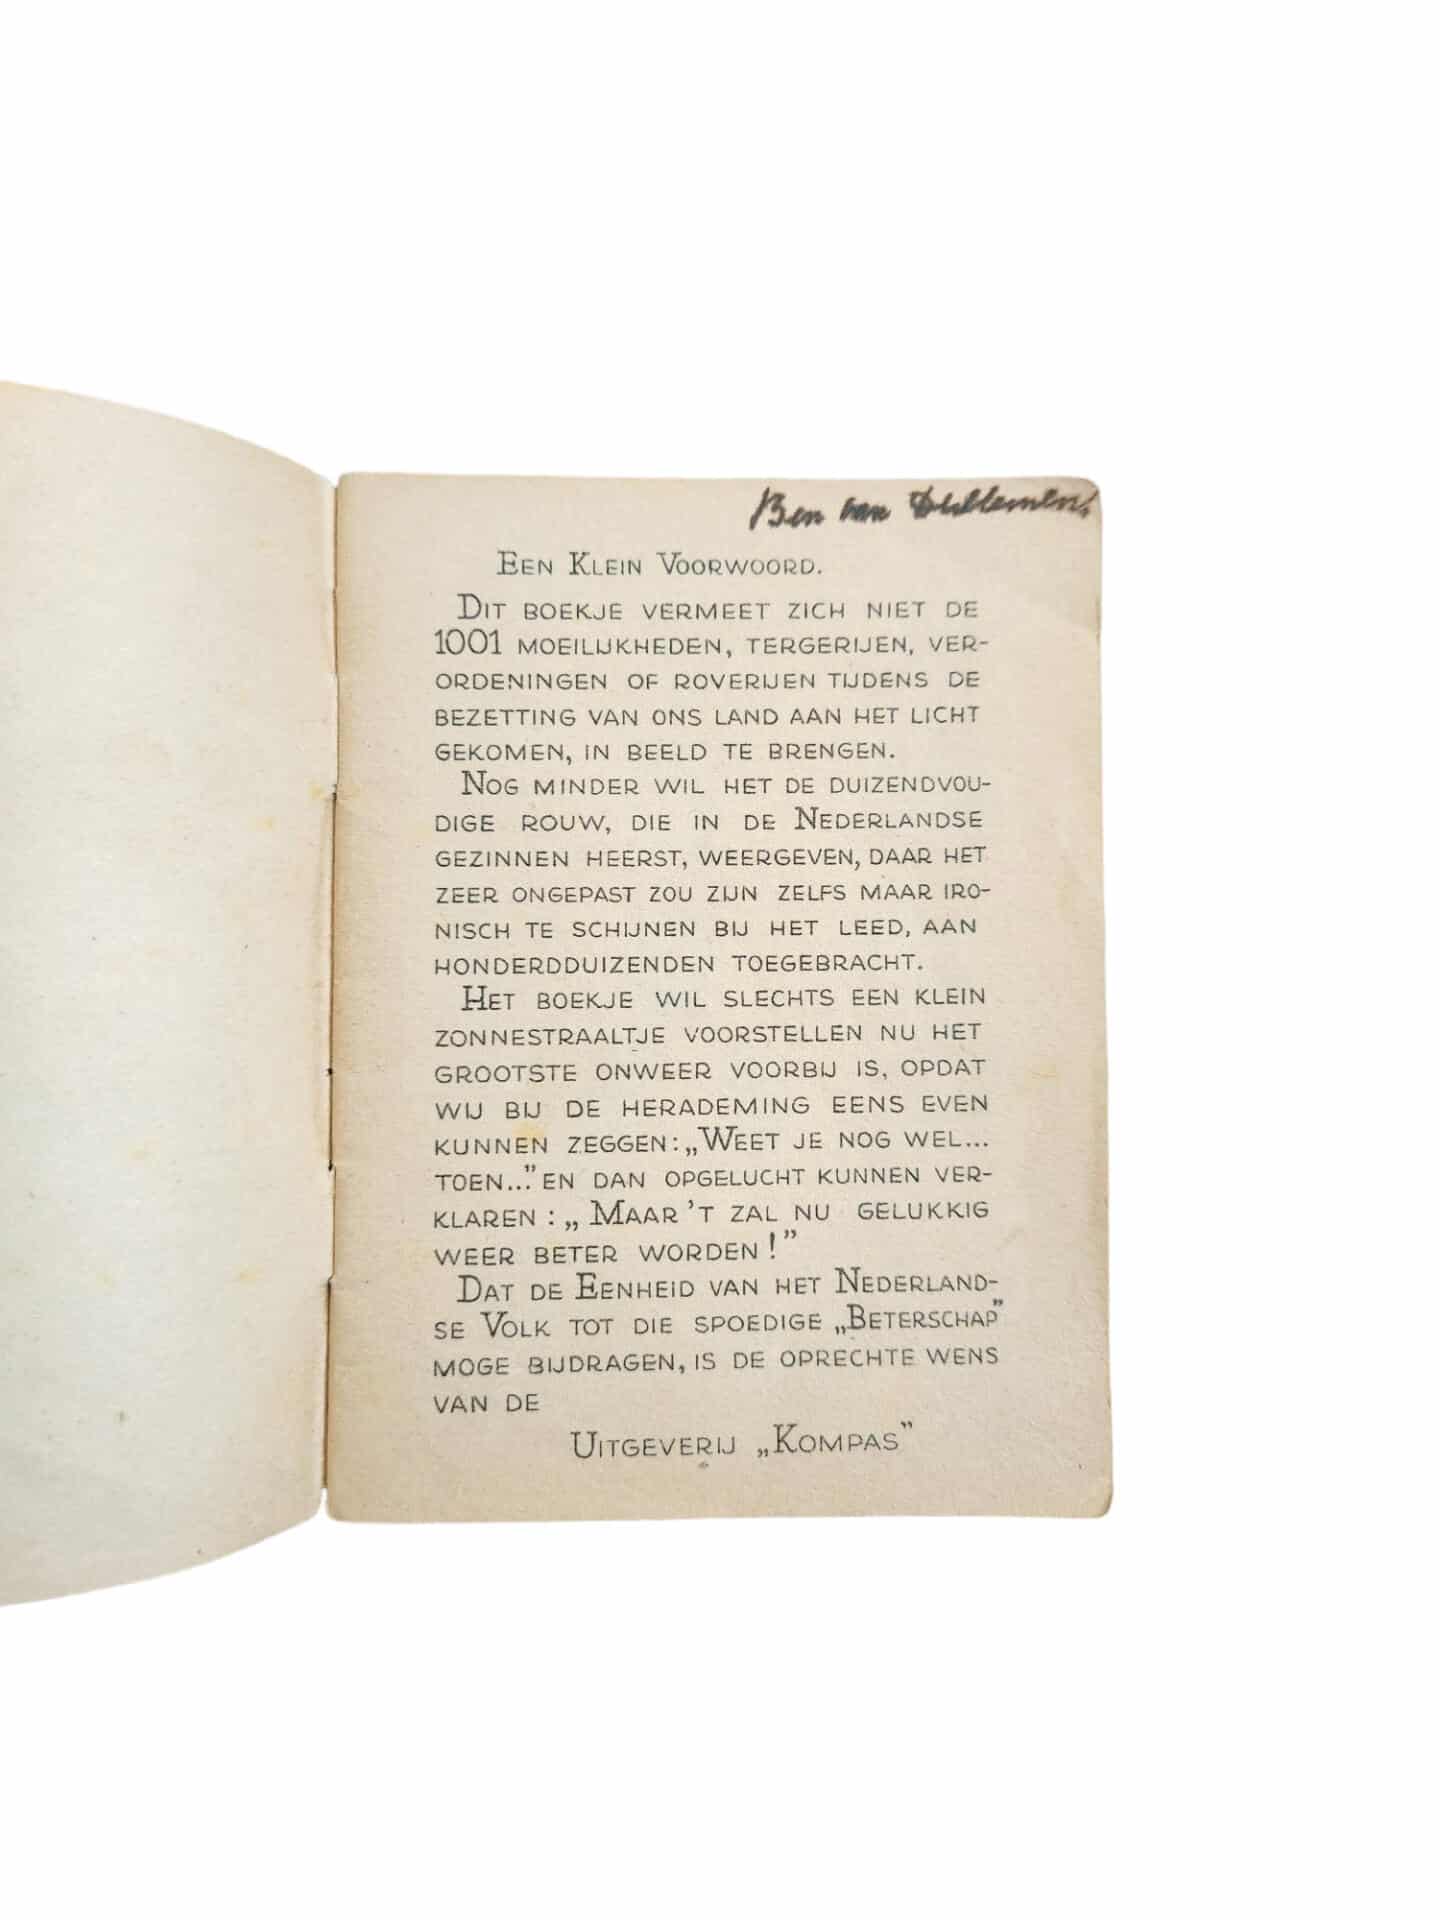 Ben van
EEN KLEIN VOORWOORD.
DIT BOEKJE VERMEET ZICH NIET DE
1001 MOEILIJKHEDEN, TERGERIJEN, VER-
ORDENINGEN OF ROVERIJEN TIJDENS DE
BEZETTING VAN ONS LAND AAN HET LICHT
GEKOMEN, IN BEELD TE BRENGEN.
NOG MINDER WIL HET DE DUIZENDVOU-
DIGE ROUW, DIE IN DE NEDERLANDSE
GEZINNEN HEERST, WEERGEVEN, DAAR HET
ZEER ONGEPAST ZOU ZIJN ZELFS MAAR IRO-
NISCH TE SCHIJNEN BIJ HET LEED, AAN
HONDERDDUIZENDEN TOEGEBRACHT.
HET BOEKJE WIL SLECHTS EEN KLEIN
ZONNESTRAALTJE VOORSTELLEN NU HET
GROOTSTE ONWEER VOORBIJ IS, OPDAT
WIJ BIJ DE HERADEMING EENS EVEN
KUNNEN ZEGGEN: „WEET JE NOG WEL...
TOEN..." EN DAN OPGELUCHT KUNNEN VER-
KLAREN : „MAAR 'T ZAL NU GELUKKIG
WEER BETER WORDEN!"
DAT DE EENHEID VAN HET NEDERLAND-
SE VOLK TOT DIE SPOEDIGE „BETERSCHAP"
MOGE BIJDRAGEN, IS DE OPRECHTE WENS
VAN DE
UITGEVERIJ „KOMPAS"